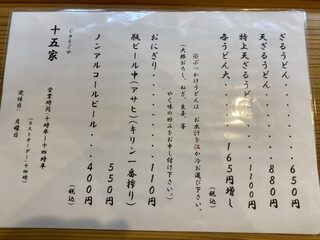 ざるうどん・・・・・・・６５０円
天ざるうどん・・・・・・８８０円
特上天ざるうどん・・・１１００円
各うどん大・・・１６５円増し
（税込）
※ぶっかけうどんは、お出汁を温か冷お選び下さい。
（大根おろし、ねぎ、生姜、等
やく味の好みをお申し付け下さい。）
おにぎり・・・・・・・・・１１０円
瓶ビール中（アサヒ）（キリン一番搾り）
５５０円
ノンアルコールビール・・・４００円
（税込）
じゅうごや
十五家
営業時間：十時半〜十四時半
（ラストオーダー：十四時）
定休日／月曜日